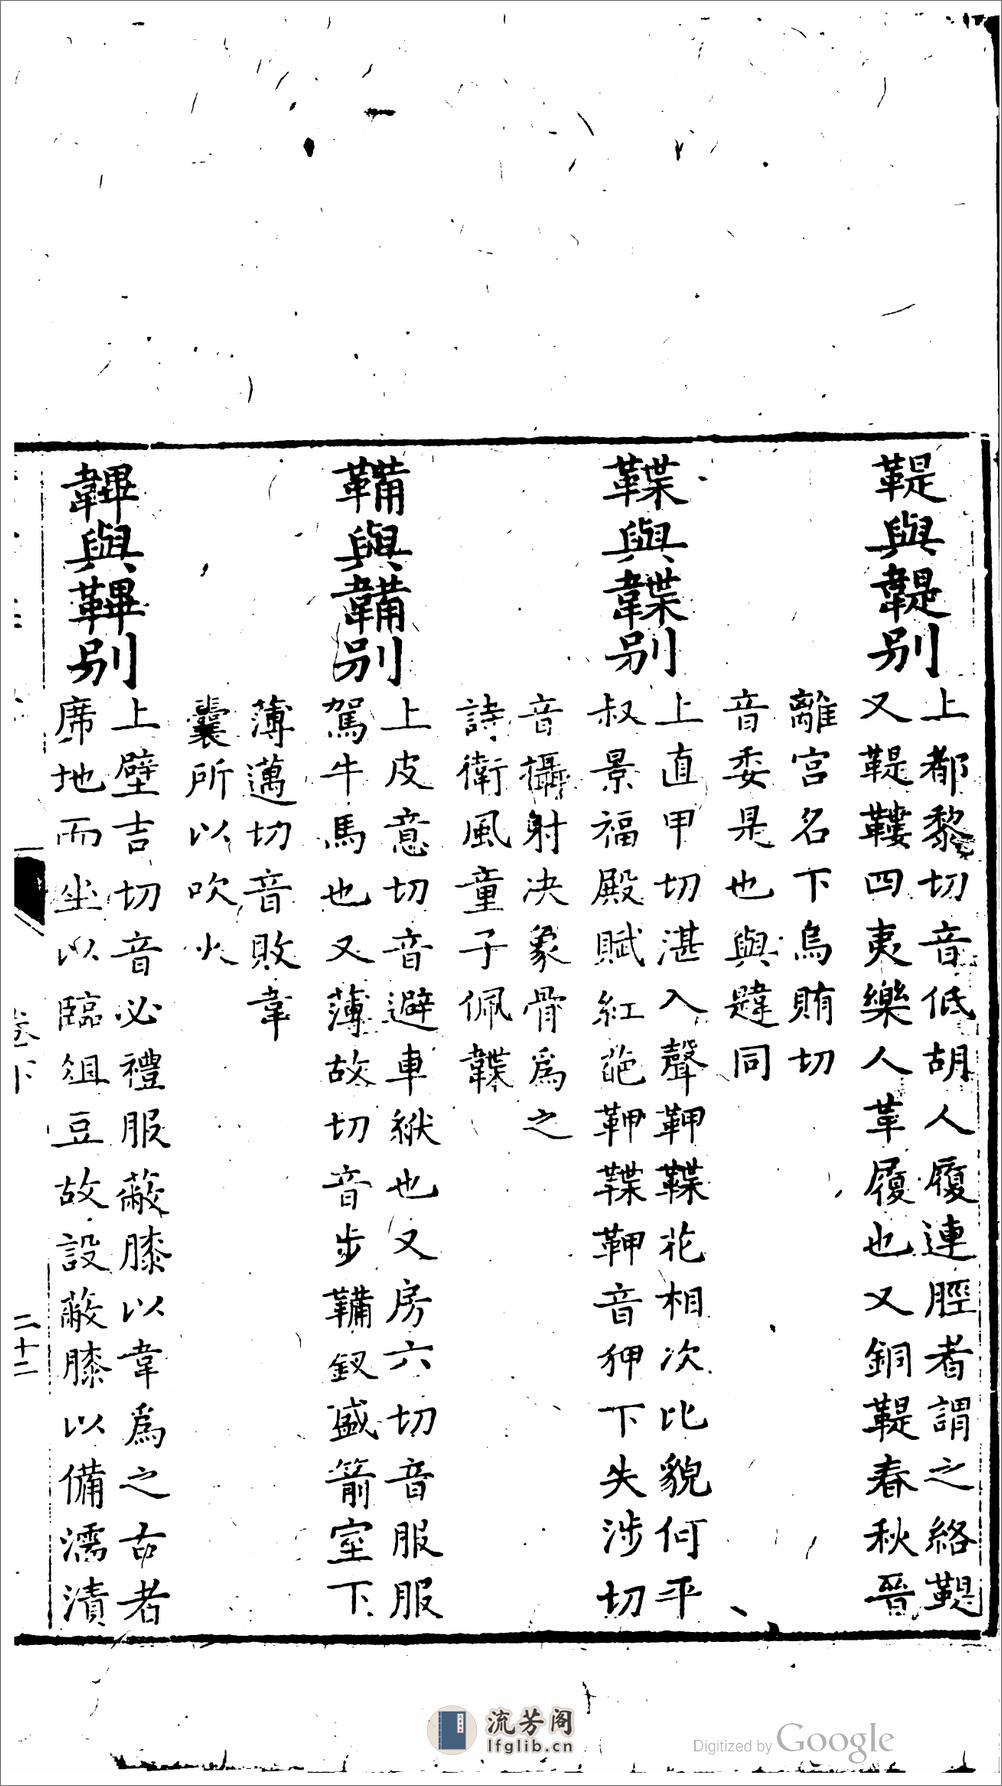 鞮與韙别
上都黎切音低胡人履連脛者謂之絡鞮
又鞮鞻四夷樂人革履也又銅鞮春秋晉
離宮名下烏賄切
音委是也與韙同
鞢與韘别
上直甲切湛入聲鞞鞢花相次比貌何平
叔景福殿賦紅葩鞞鞢鞞音狎下失涉切
音攝射决象骨爲之
詩衛風童子佩韘
鞴與韛别
上皮意切音避車絥也又房六切音服服
駕牛馬也又薄故切音步鞴釵盛箭室下
薄邁切音敗韋
囊所以吹火
韠與鞸别
上壁吉切音必禮服蔽膝以韋爲之古者
席地而坐以臨俎豆故設蔽膝以備濡漬
卷下
二十二
流芳阁
lfglib.cn
Digitized by Google